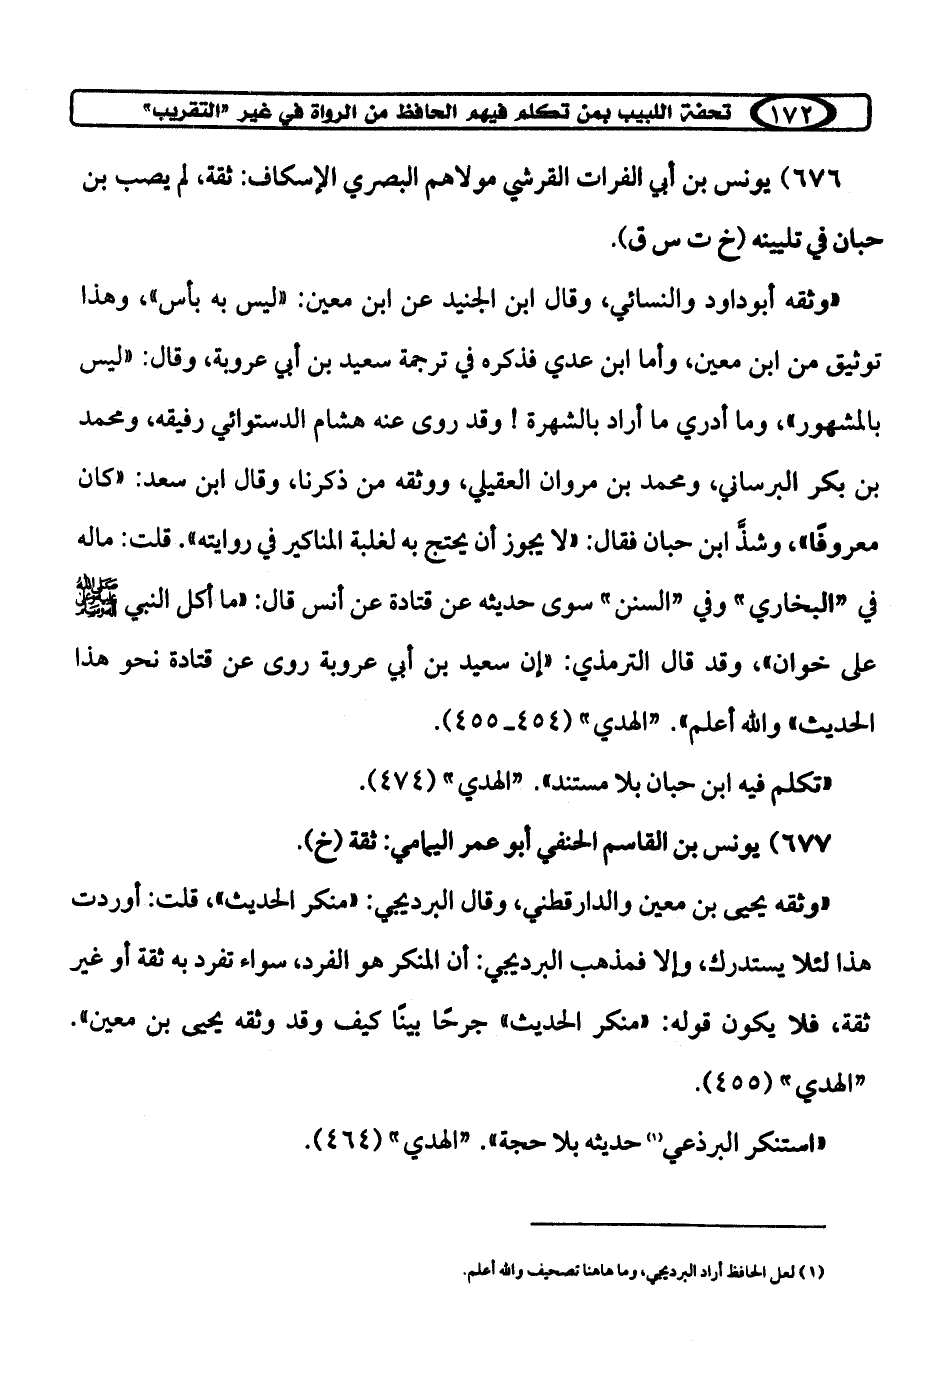 ١٧٢ تحفة اللبيب بمن تكلم فيهم الحافظ من الرواة في غير "التقريب"
٦٧٦) يونس بن أبي الفرات القرشي مولاهم البصري الإسكاف: ثقة، لم يصب بن
حبان في تليينه (خ ت س ق).
«وثقه أبوداود والنسائي، وقال ابن الجنيد عن ابن معين: «ليس به بأس»، وهذا
توثيق من ابن معين، وأما ابن عدي فذكره في ترجمة سعيد بن أبي عروبة، وقال: «ليس
بالمشهور»، وما أدري ما أراد بالشهرة ! وقد روى عنه هشام الدستوائي رفيقه، ومحمد
بن بكر البرساني، ومحمد بن مروان العقيلي، ووثقه من ذكرنا، وقال ابن سعد: «كان
معروفًا»، وشذَّ ابن حبان فقال: «لا يجوز أن يحتج به لغلبة المناكير في روايته». قلت: ماله
في "البخاري" وفي "السنن" سوى حديثه عن قتادة عن أنس قال: «ما أكل النبي ﷺ
على خوان»، وقد قال الترمذي: «إن سعيد بن أبي عروبة روى عن قتادة نحو هذا
الحديث» والله أعلم». "الهدي" (٤٥٤ـ٤٥٥).
«تكلم فيه ابن حبان بلا مستند». "الهدي" (٤٧٤).
٦٧٧) يونس بن القاسم الحنفي أبو عمر اليمامي: ثقة (خ).
«وثقه يحيى بن معين والدارقطني، وقال البرديجي: «منكر الحديث»، قلت: أوردت
هذا لئلا يستدرك، وإلا فمذهب البرديجي: أن المنكر هو الفرد، سواء تفرد به ثقة أو غير
ثقة، فلا يكون قوله: «منكر الحديث» جرحًا بينًا كيف وقد وثقه يحيى بن معين».
"الهدي" (٤٥٥).
«استنكر البرذعي(١) حديثه بلا حجة». "الهدي" (٤٦٤).
(١) لعل الحافظ أراد البرديجي، وما هاهنا تصحيف والله أعلم.